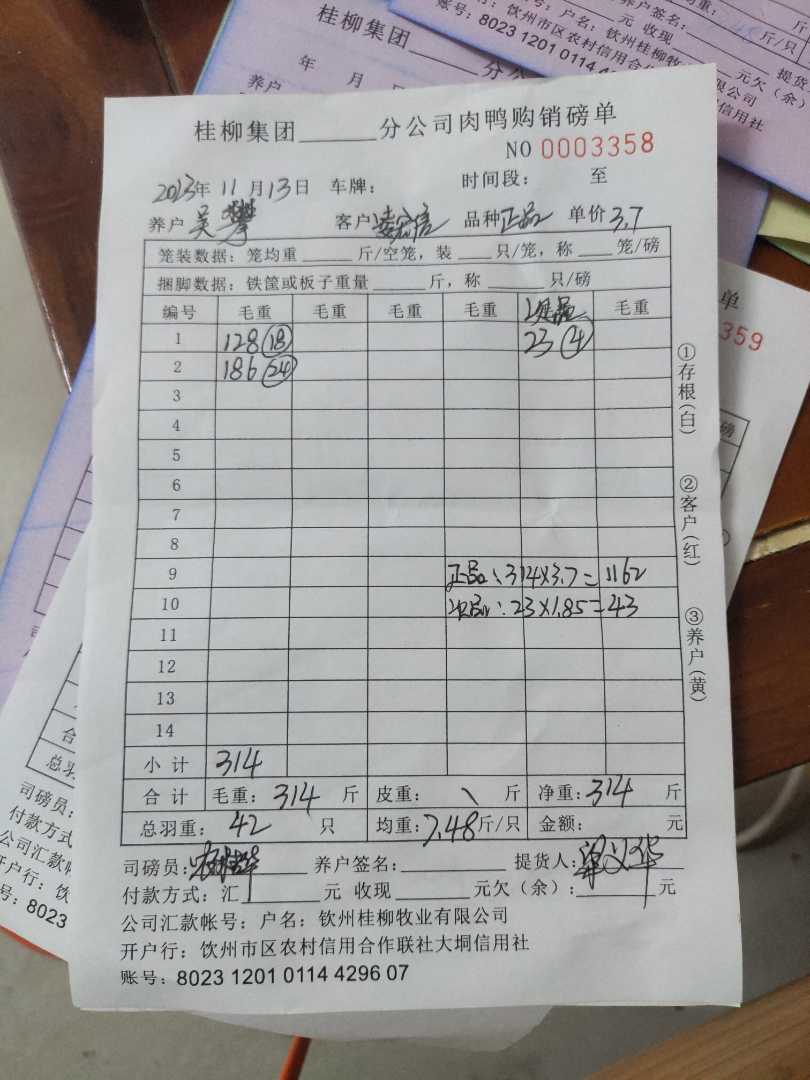 桂柳集团______分公司肉鸭购销磅单
NO 0003358
2023年 11月 13日 车牌: 时间段: 至
养户 吴 客户 凌宏信 品种 正品 单价 3.7
笼装数据: 笼均重______斤/空笼, 装___只/笼, 称___笼/磅
捆脚数据: 铁筐或板子重量______斤, 称______只/磅
编号 毛重 毛重 毛重 毛重 次品 毛重
1 128 (18) 23 (4)
2 186 (24)
3
4
5
6
7
8
9 正品: 314×3.7=1162
10 次品: 23×1.85=43
11
12
13
14
小计 314
合计 毛重: 314 斤 皮重: \ 斤 净重: 314 斤
总羽重: 42 只 均重: 7.48斤/只 金额: 元
司磅员: 养户签名:________ 提货人: 梁义华
付款方式: 汇________元 收现________元欠(余):________元
公司汇款帐号: 户名: 钦州桂柳牧业有限公司
开户行: 钦州市区农村信用合作联社大垌信用社
账号: 8023 1201 0114 4296 07
①存根(白)
②客户(红)
③养户(黄)
桂柳集团
分公
年 月
养户
账号: 8023 1201 0114 429
户名: 钦州桂柳牧
元 收现
养户签名:
均重:
斤/只
提货人
元欠(余)
限公司
信用社
单
359
磅
合
总羽
司磅员:
付款方式
公司汇款
开户行: 钦
号: 8023